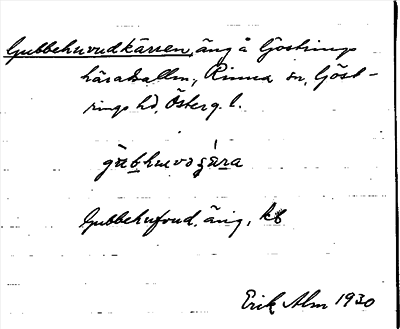 Gubbehuvudkärren, äng å Göstrings
häradsallm., Rinna sn, Göst-
rings hd, Österg. l.
Gubbehufvud, äng, kb
Erik Alm 1930